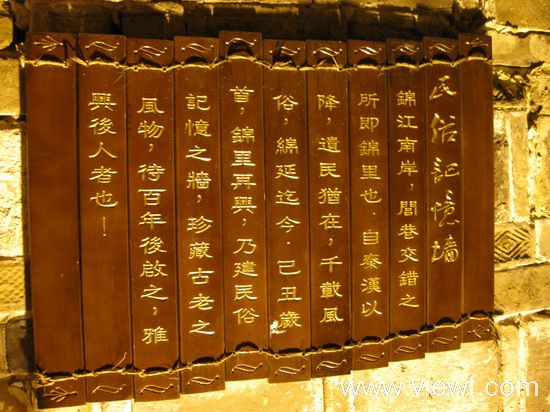 民俗記憶墻
錦江南岸，閭巷交錯之
所即錦里也．自秦漢以
降，遺民猶在，千載風
俗，綿延迄今．己丑歲
首，錦里再興，乃建民俗
記憶之牆，珍藏古老之
風物，待百年後啟之，雅
興後人者也！
www.viewf.com